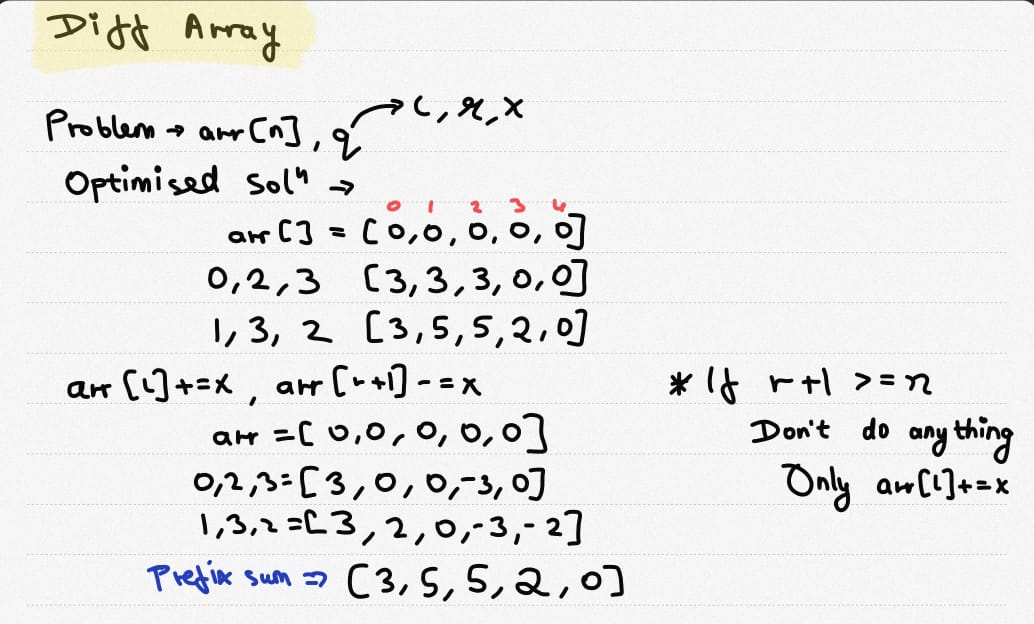 Diff Array
Problem → arr[n], q → l, r, x
Optimised Solⁿ →
0 1 2 3 4
arr[] = [0,0,0,0,0]
0,2,3 [3,3,3,0,0]
1,3,2 [3,5,5,2,0]
arr[l]+=x, arr[r+1]-=x
arr =[0,0,0,0,0]
0,2,3=[3,0,0,-3,0]
1,3,2=[3,2,0,-3,-2]
Prefix sum ⇒ [3,5,5,2,0]
* If r+1 >=n
Don't do anything
Only arr[l]+=x